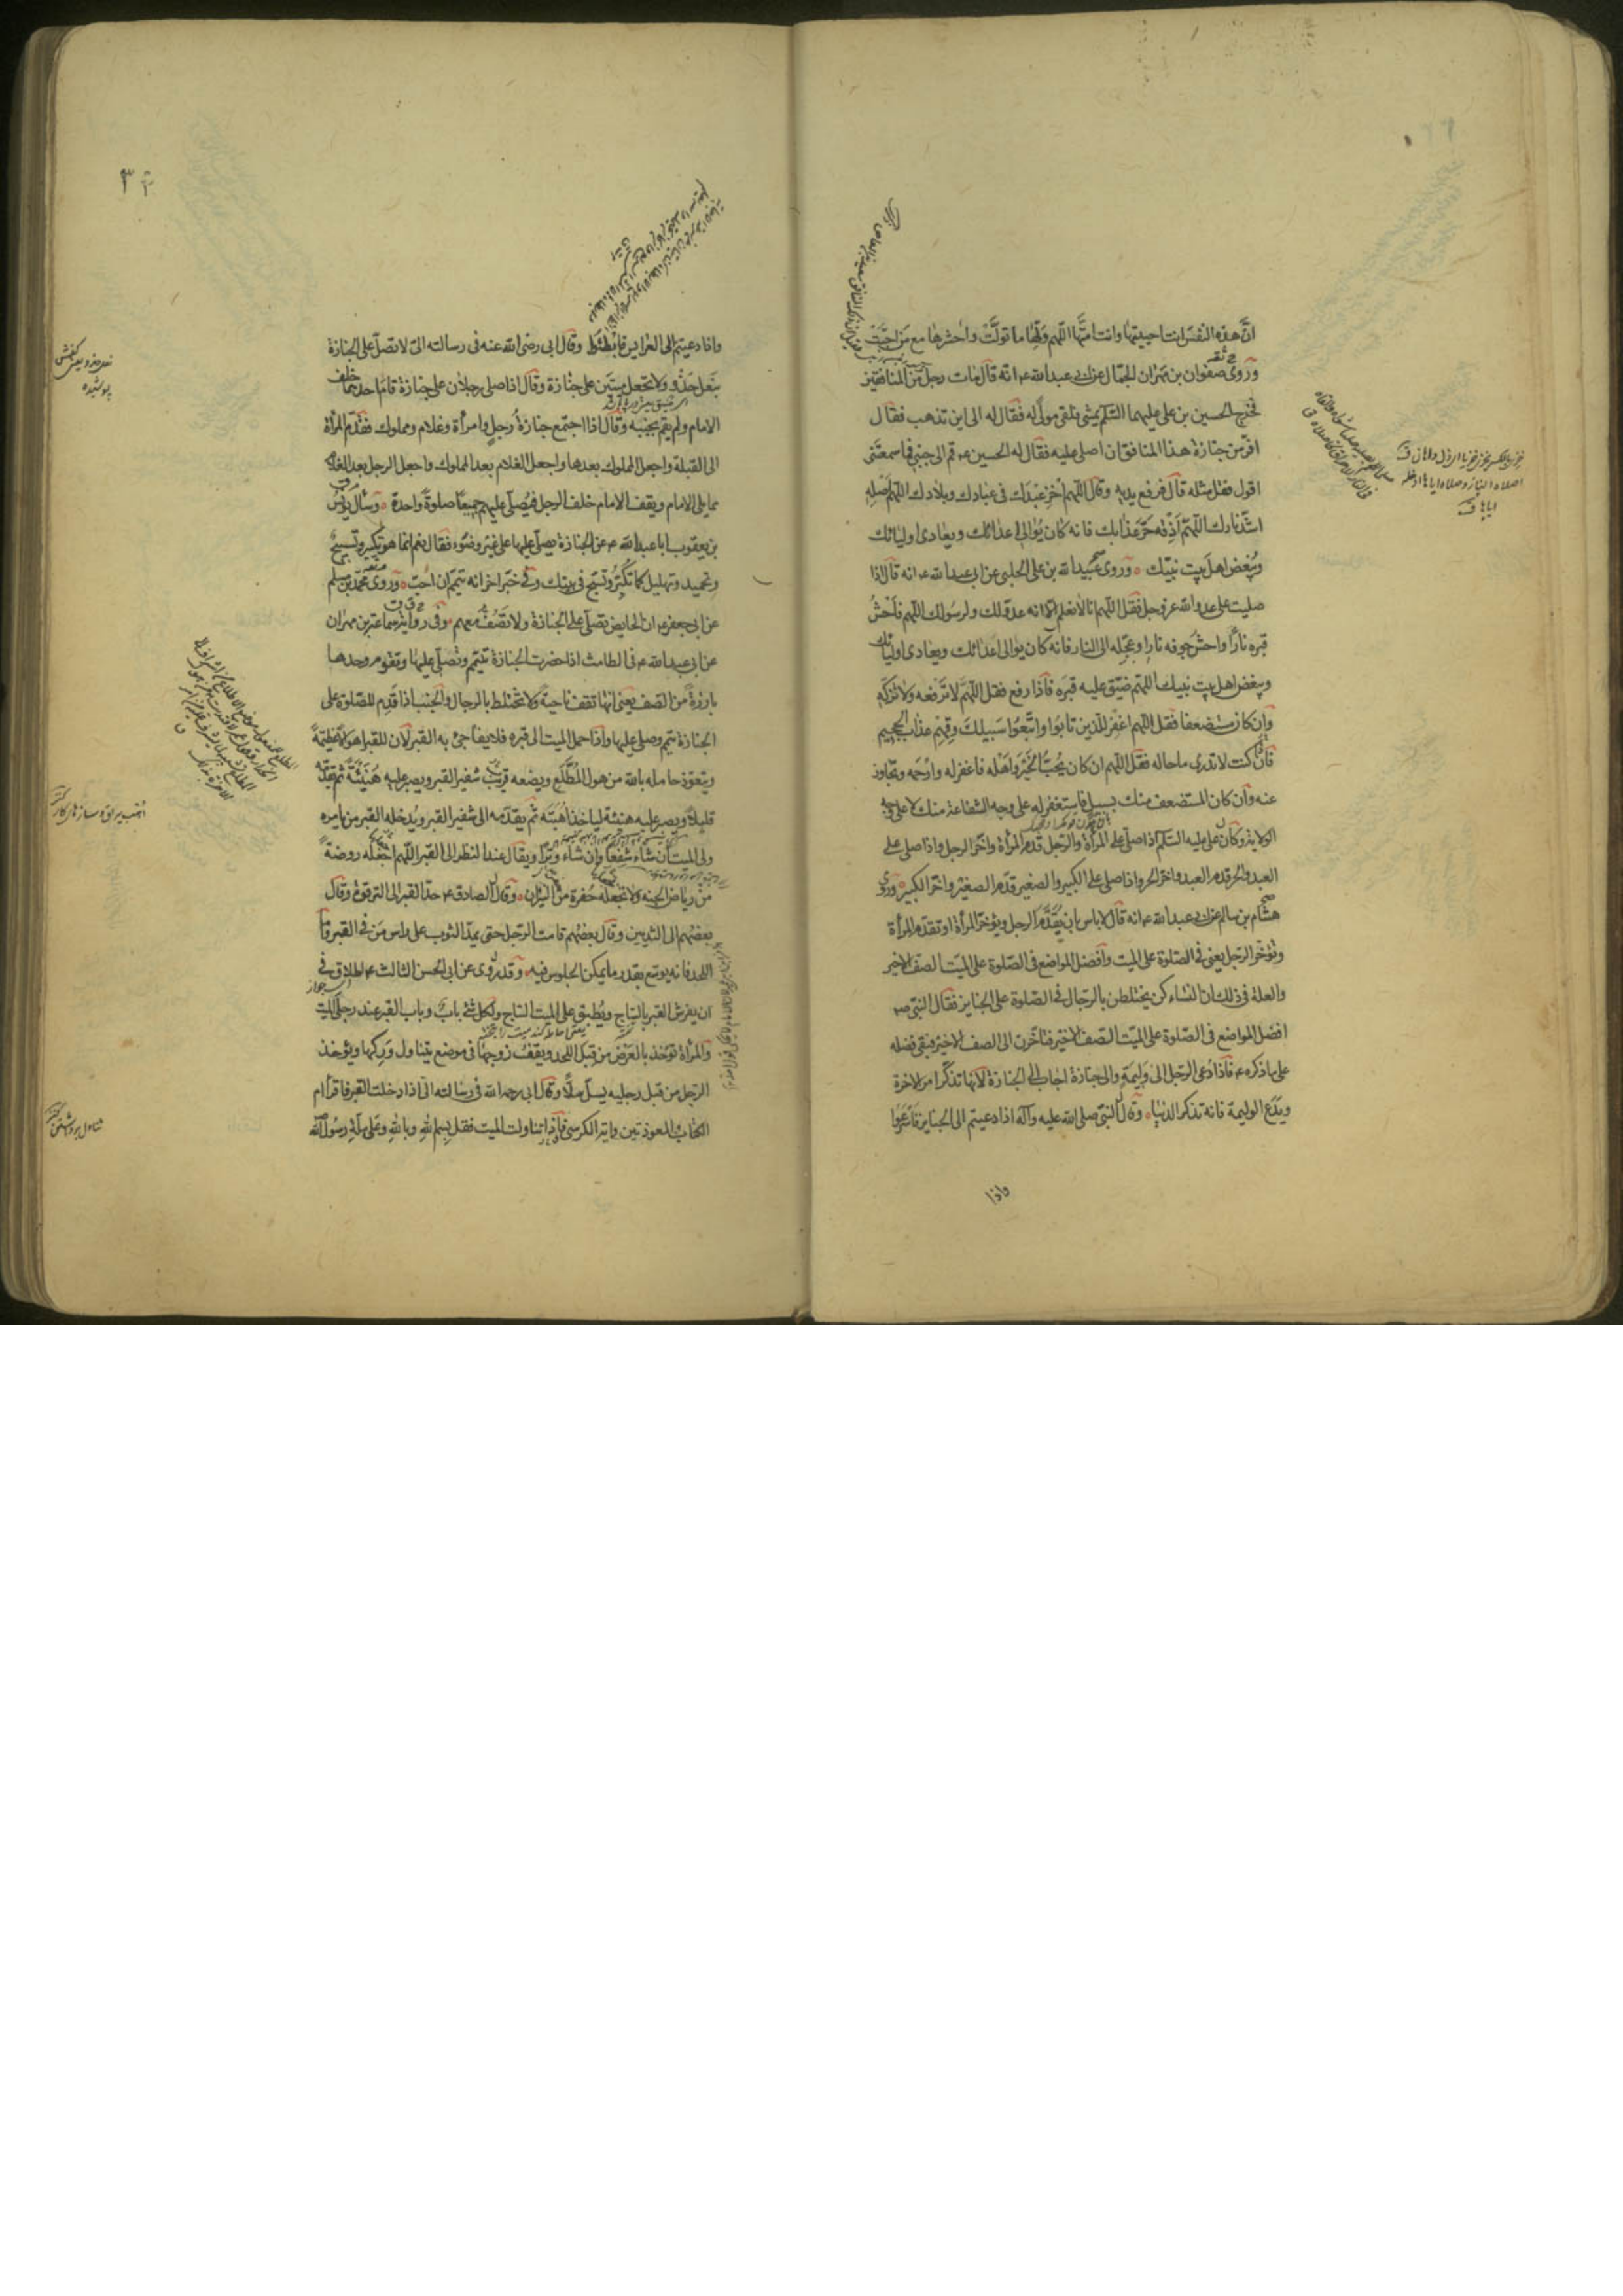 انّ هذه النفس انت احييتها وانت امتّها اللهم ولّها ما تولّت واحشرها مع من احبّت
وروى صفوان بن مهران الجمّال عن ابي عبد الله ع انه قال مات رجل من المنافقين
فخرج الحسين بن علي عليهما السّلم يمشي فلقي مولى له فقال له الى اين تذهب فقال
افرّ من جنازة هذا المنافق ان اصلي عليه فقال له الحسين ع قم الى جنبي فما سمعتني
اقول فقل مثله قال فرفع يديه وقال اللهم اخز عبدك في عبادك وبلادك اللهم اصله
اشدّ نارك اللهم اذقه حرّ عذابك فانه كان يوالي اعدائك ويعادي اوليائك
ويبغض اهل بيت نبيّك وروى عبيد الله بن علي الحلبي عن ابي عبد الله ع انه قال اذا
صليت على عدو الله عز وجل فقل اللهم انا لا نعلم الا انه عدوّ لك ولرسولك اللهم فاحش
قبره نارا واحش جوفه نارا وعجّله الى النار فانه كان يوالي اعدائك ويعادي اوليائك
ويبغض اهل بيت نبيك اللهم ضيّق عليه قبره فاذا رفع فقل اللهمّ لا ترفعه ولا تزكّه
وان كان مستضعفا فقل اللهم اغفر للذين تابوا واتّبعوا سبيلك وقهم عذاب الجحيم
فان كنت لا تدري ما حاله فقل اللهم ان كان يحبّ الخير واهله فاغفر له وارحمه وتجاوز
عنه وان كان المستضعف منك بسبيل فاستغفر له على وجه الشفاعة منك لا على وجه
الولاية وكان علي عليه السّلم اذا صلى على المرأة والرجل قدم المرأة واخّر الرجل واذا صلى على
العبد والحر قدم العبد واخر الحر واذا صلى على الكبير والصغير قدّم الصغير واخر الكبير وروى
هشام بن سالم عن ابي عبد الله ع انه قال لا باس بان يقدّم الرجل ويؤخر المرأة او تقدم المرأة
وتؤخر الرجل يعني في الصلوة على الميت وافضل المواضع في الصّلوة على الميّت الصف الاخير
والعلة في ذلك ان النساء كن يختلطن بالرّجال في الصّلوة على الجنايز فقال النبي ص
افضل المواضع في الصّلوة على الميّت الصّف الاخير فتاخّرن الى الصف الاخير فبقي فضله
على ما ذكره ع فاذا دعي الرجل الى وليمة والى جنازة اجاب الى الجنازة لانها تذكّر امر الاخرة
ويدع الوليمة فانه تذكر الدنيا وقال النبيّ صلى الله عليه وآله اذا دعيتم الى الجنايز فاسرعوا
واذا
واذا دعيتم الى العرايس فابطئوا وقال ابي رضي الله عنه في رسالته اليّ لا تصلّ على الجنازة
بنعل حذو ولا تجعل ميتين على جنازة وقال اذا صلى رجلان على جنازة قام احدهما خلف
الامام ولم يقم بجنبه وقال اذا اجتمع جنازة رجل وامرأة وغلام ومملوك فقدّم المرأة
الى القبلة واجعل المملوك بعدها واجعل الغلام بعد المملوك واجعل الرجل بعد الغلام
مما يلي الامام ويقف الامام خلف الرجل فيصلّي عليهم جميعا صلوة واحدة وسأل يونس
بن يعقوب ابا عبد الله ع عن الجنازة يصلّى عليها على غير وضوء فقال نعم انما هو تكبير وتسبيح
وتحميد وتهليل كما تكبّر وتسبّح في بيتك وفي خبر اخر انه يتيمّم ان احبّ وروى محمّد بن مسلم
عن ابي جعفر ع ان الحايض تصلّي على الجنازة ولا تصفّ معهم وفي رواية سماعة بن مهران
عن ابي عبد الله ع في الطامث اذا حضرت الجنازة تتيمّم وتصلّي عليها وتقوم وحدها
بارزة من الصّف يعني انها تقف ناحية ولا تختلط بالرجال والجنب اذا قدّم للصّلوة على
الجنازة تيمّم وصلى عليها واذا حمل الميت الى قبره فلا يفاجئ به القبر لان للقبر اهوالا عظيمة
ويتعوّذ حامله بالله من هول المطّلع ويضعه قرب شفير القبر ويصبر عليه هنيئة ثم يقدّمه
قليلا ويصبر عليه هنيئة لياخذ اهبته ثم يقدّمه الى شفير القبر ويدخله القبر من يامره
ولي الميّت ان شاء شفعا وان شاء وترا ويقال عند النظر الى القبر اللهم اجعله روضة
من رياض الجنة ولا تجعله حفرة من النيران وقال الصادق ع حدّ القبر الى الترقوة وقال
بعضهم الى الثديين وقال بعضهم قامت الرّجل حتى يمدّ الثوب على راس من في القبر واما
اللحد فانه يوسّع بقدر ما يمكن الجلوس فيه وقد روى عن ابي الحسن الثالث ع اطلاق في
ان يفرش القبر بالسّاج ويطبق على الميت الساج ولكل شئ باب وباب القبر عند رجلي الميت
والمرأة تؤخذ بالعرض من قبل اللحد ويقف زوجها في موضع يتناول وركها ويؤخذ
الرجل من قبل رجليه يسلّ سلّا وقال ابي رحمه الله في رسالته اليّ اذا دخلت القبر فاقرأ ام
الكتاب والمعوذتين واية الكرسي فاذا تناولت الميت فقل بسم الله وبالله وعلى ملة رسول الله